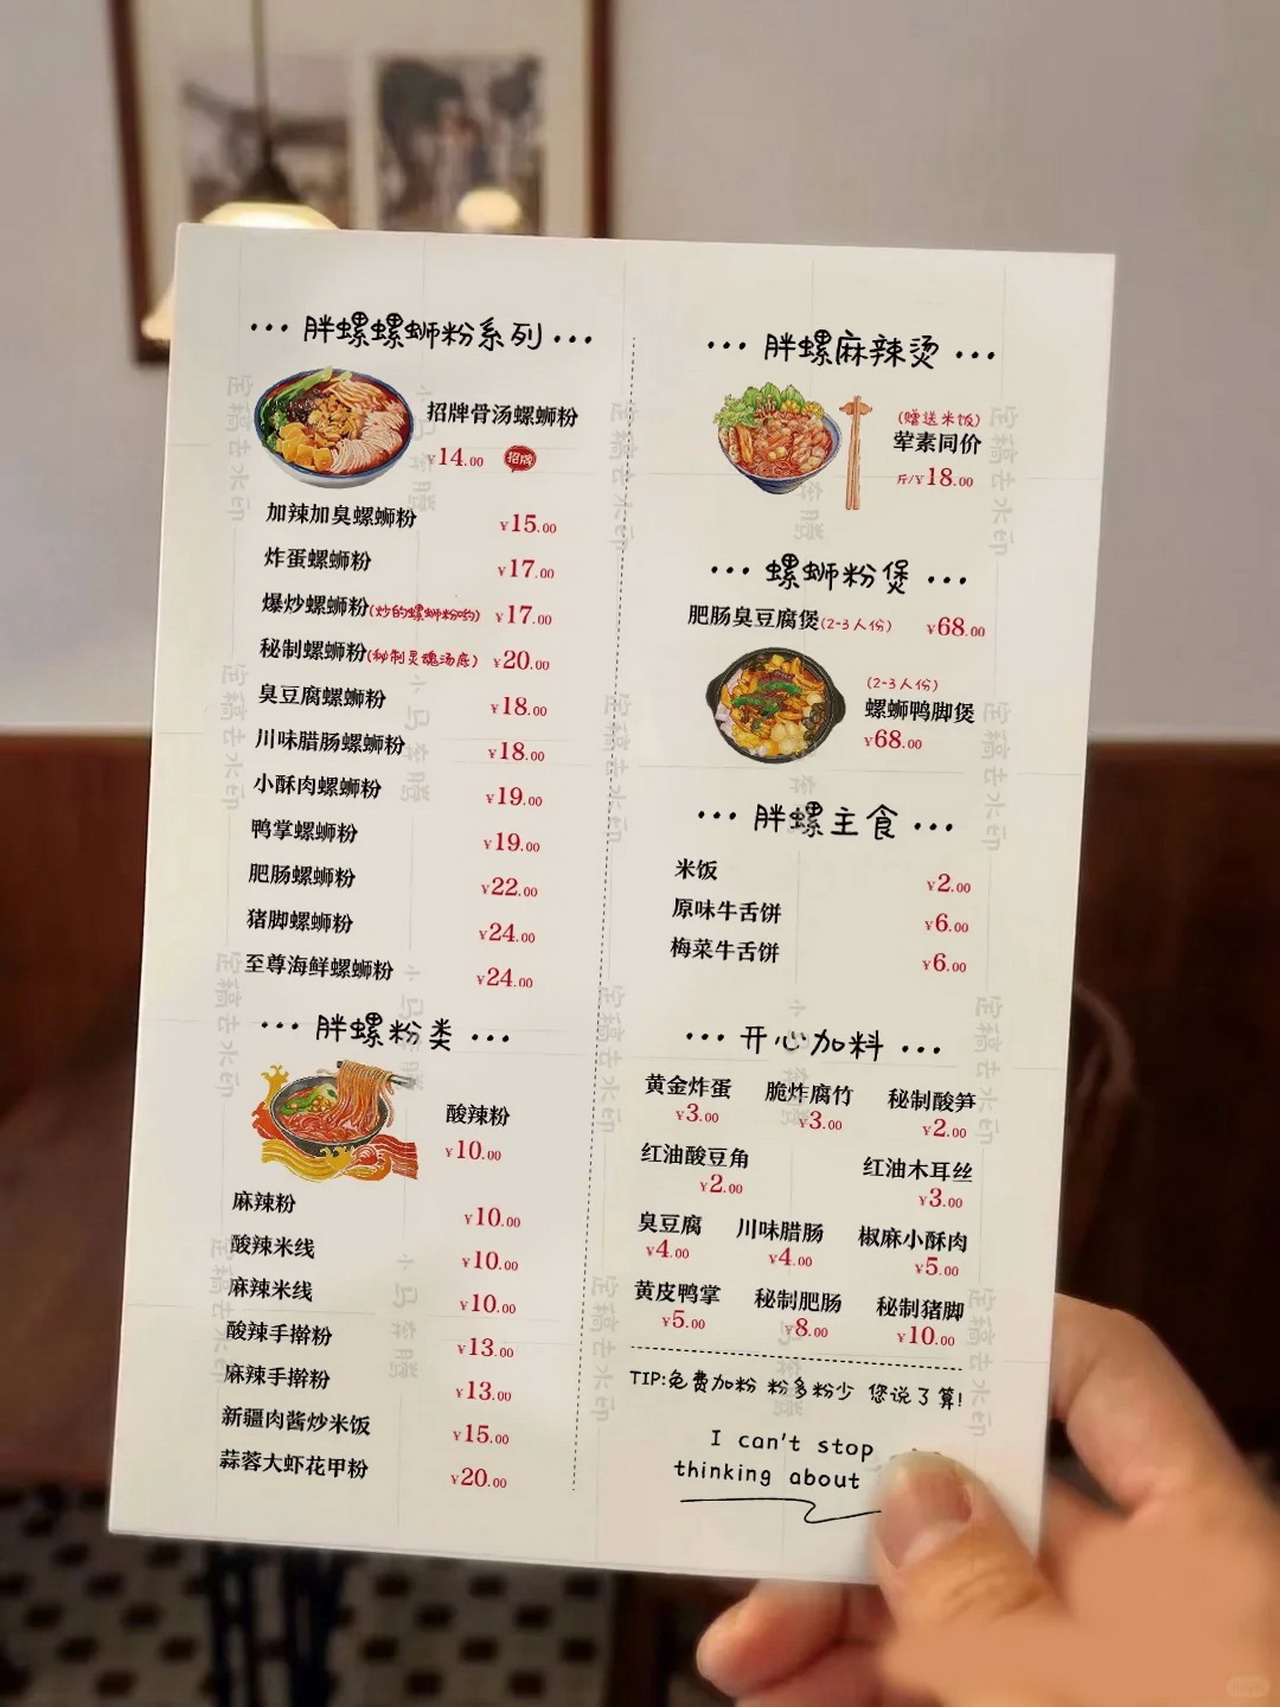 ··· 胖螺螺蛳粉系列 ···
招牌骨汤螺蛳粉
¥14.00 招牌
加辣加臭螺蛳粉 ¥15.00
炸蛋螺蛳粉 ¥17.00
爆炒螺蛳粉(炒的螺蛳粉哟) ¥17.00
秘制螺蛳粉(秘制灵魂汤底) ¥20.00
臭豆腐螺蛳粉 ¥18.00
川味腊肠螺蛳粉 ¥18.00
小酥肉螺蛳粉 ¥19.00
鸭掌螺蛳粉 ¥19.00
肥肠螺蛳粉 ¥22.00
猪脚螺蛳粉 ¥24.00
至尊海鲜螺蛳粉 ¥24.00
··· 胖螺粉类 ···
酸辣粉
¥10.00
麻辣粉 ¥10.00
酸辣米线 ¥10.00
麻辣米线 ¥10.00
酸辣手擀粉 ¥13.00
麻辣手擀粉 ¥13.00
新疆肉酱炒米饭 ¥15.00
蒜蓉大虾花甲粉 ¥20.00
··· 胖螺麻辣烫 ···
(赠送米饭)
荤素同价
斤/¥18.00
··· 螺蛳粉煲 ···
肥肠臭豆腐煲(2-3人份) ¥68.00
(2-3人份)
螺蛳鸭脚煲
¥68.00
··· 胖螺主食 ···
米饭 ¥2.00
原味牛舌饼 ¥6.00
梅菜牛舌饼 ¥6.00
··· 开心加料 ···
黄金炸蛋 脆炸腐竹 秘制酸笋
¥3.00 ¥3.00 ¥2.00
红油酸豆角 红油木耳丝
¥2.00 ¥3.00
臭豆腐 川味腊肠 椒麻小酥肉
¥4.00 ¥4.00 ¥5.00
黄皮鸭掌 秘制肥肠 秘制猪脚
¥5.00 ¥8.00 ¥10.00
TIP:免费加粉 粉多粉少 您说了算!
I can't stop
thinking about
定稿去水印
小马奔腾